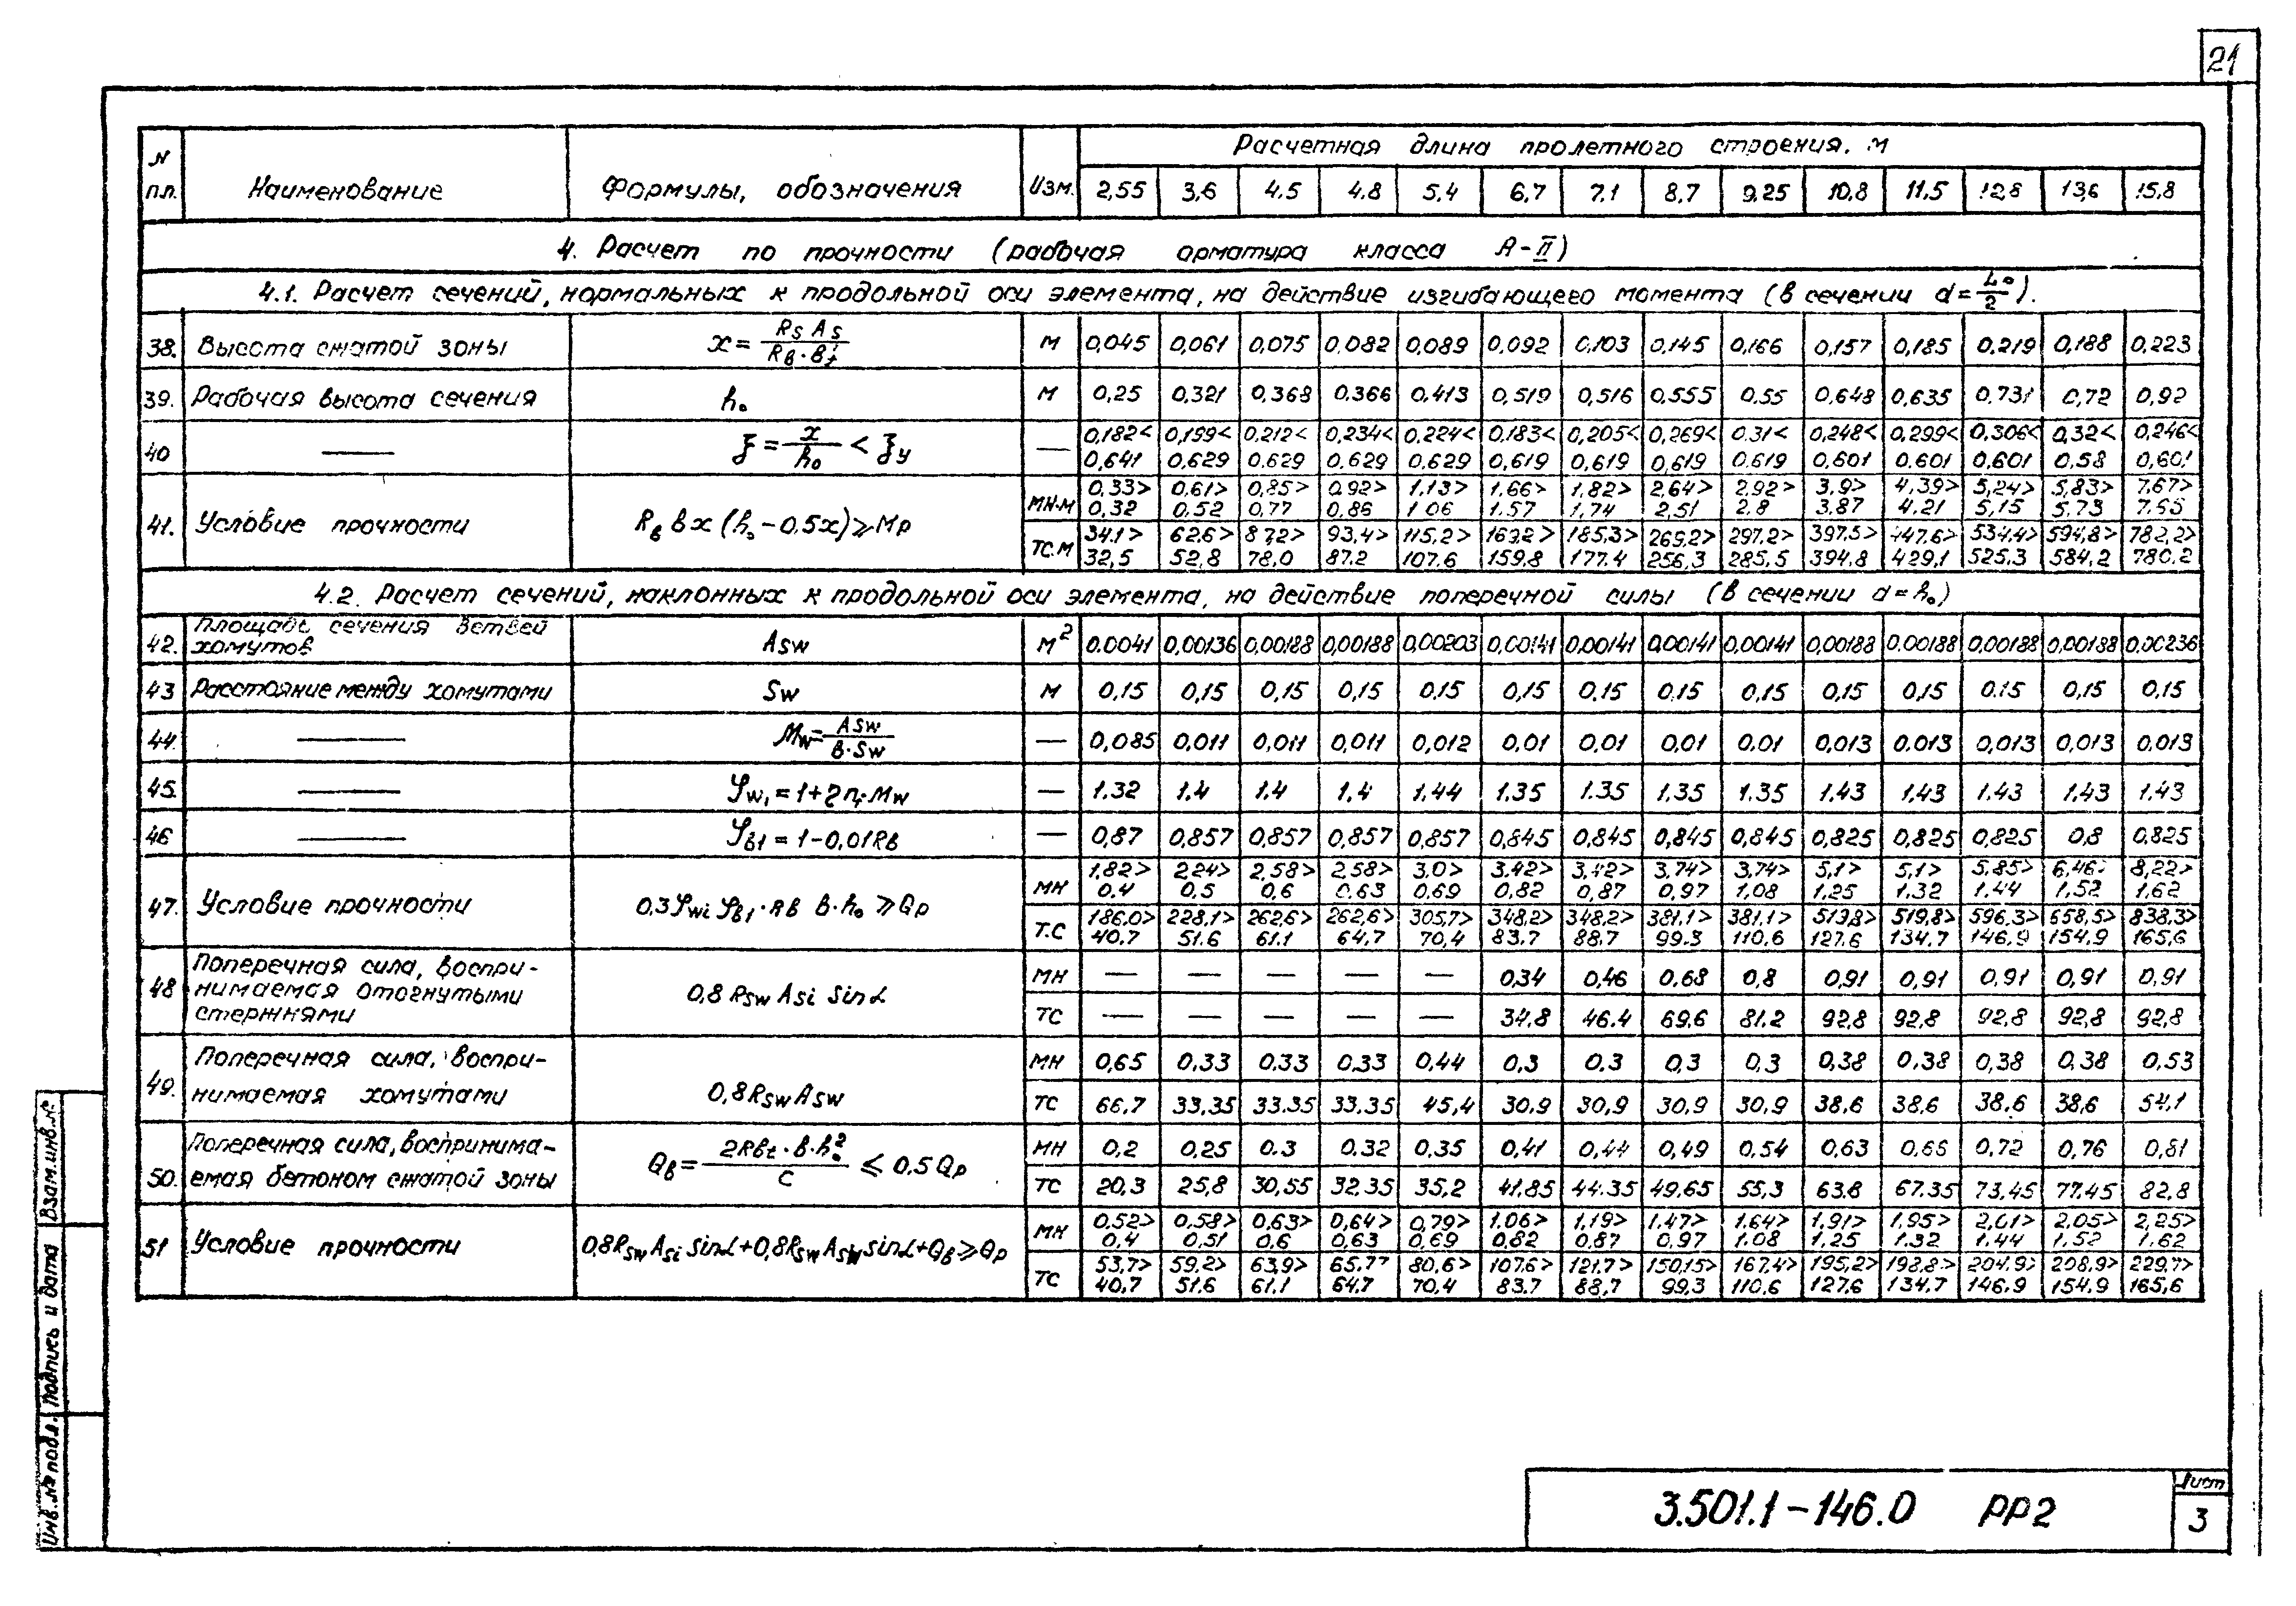 21
N п.п. Наименование Формулы, обозначения Изм. Расчетная длина пролетного строения, м
2,55 3,6 4,5 4,8 5,4 6,7 7,1 8,7 9,25 10,8 11,5 12,8 13,6 15,8
4. Расчет по прочности (рабочая арматура класса А-II)
4.1. Расчет сечений, нормальных к продольной оси элемента, на действие изгибающего момента (в сечении d=L₀/2).
38. Высота сжатой зоны x = Rs As / Rв·в'f м 0,045 0,061 0,075 0,082 0,089 0,092 0,103 0,145 0,166 0,157 0,185 0,219 0,188 0,223
39. Рабочая высота сечения h₀ м 0,25 0,321 0,368 0,366 0,413 0,519 0,516 0,555 0,55 0,648 0,635 0,731 0,72 0,92
40 — ξ = x/h₀ < ξy — 0,182< 0,199< 0,212< 0,234< 0,224< 0,183< 0,205< 0,269< 0.31< 0,248< 0,299< 0,306< 0,32< 0,246<
0,641 0,629 0,629 0,629 0,629 0,619 0,619 0,619 0,619 0,601 0,601 0,601 0,58 0,601
41. Условие прочности Rв вx (h₀-0,5x) ⩾ Mр МН.м 0,33> 0,61> 0,85> 0,92> 1,13> 1,66> 1,82> 2,64> 2,92> 3,9> 4,39> 5,24> 5,83> 7,67>
0,32 0,52 0,77 0,86 1,06 1,57 1,74 2,51 2,8 3,87 4,21 5,15 5,73 7,65
ТС.М 34,1> 62,6> 87,2> 93,4> 115,2> 169,2> 185,3> 269,2> 297,2> 397,5> 447,6> 534,4> 594,8> 782,2>
32,5 52,8 78,0 87,2 107,6 159,8 177,4 256,3 285,5 394,8 429,1 525,3 584,2 780,2
4.2. Расчет сечений, наклонных к продольной оси элемента, на действие поперечной силы (в сечении d=h₀)
42. Площадь сечения ветвей хомутов Asw м² 0,0041 0,00136 0,00188 0,00188 0,00203 0,00141 0,00141 0,00141 0,00141 0,00188 0,00188 0,00188 0,00188 0,00236
43 Расстояние между хомутами Sw м 0,15 0,15 0,15 0,15 0,15 0,15 0,15 0,15 0,15 0,15 0,15 0,15 0,15 0,15
44. — Mw = Asw / в·Sw — 0,085 0,011 0,011 0,011 0,012 0,01 0,01 0,01 0,01 0,013 0,013 0,013 0,013 0,013
45. — φw₁ = 1+ηn₁·Mw — 1.32 1.4 1.4 1,4 1,44 1.35 1.35 1,35 1.35 1.43 1,43 1.43 1,43 1,43
46 — φв1 = 1-0,01Rв — 0,87 0,857 0,857 0,857 0,857 0,845 0,845 0,845 0,845 0,825 0,825 0,825 0,8 0,825
47. Условие прочности 0,3φwi φв1·Rв в·h₀ ⩾ Qр МН 1,82> 2,24> 2,58> 2,58> 3,0> 3,42> 3,42> 3,74> 3,74> 5,1> 5,1> 5,85> 6,46> 8,22>
0.4 0.5 0,6 0,63 0,69 0,82 0,87 0,97 1,08 1,25 1,32 1,44 1,52 1,62
Т.С 186,0> 228,1> 262,6> 262,6> 305,7> 348,2> 348,2> 381,1> 381,1> 519,8> 519,8> 596,3> 658,5> 838,3>
40,7 51,6 61,1 64,7 70,4 83,7 88,7 99,3 110,6 127,6 134,7 146,9 154,9 165,6
48 Поперечная сила, воспринимаемся отогнутыми стержнями 0,8 Rsw Asi sin α МН — — — — — 0,34 0,46 0,68 0,8 0,91 0,91 0,91 0,91 0,91
ТС — — — — — 34.8 46.4 69,6 81.2 92,8 92,8 92,8 92,8 92,8
49. Поперечная сила, воспринимаемая хомутами 0,8Rsw Asw МН 0,65 0,33 0,33 0,33 0,44 0,3 0,3 0,3 0,3 0,38 0,38 0,38 0,38 0,53
ТС 66,7 33,35 33,35 33,35 45,4 30,9 30,9 30,9 30,9 38,6 38,6 38,6 38,6 54,1
50. Поперечная сила, воспринимаемая бетоном сжатой зоны Qв = 2Rвt·в·h₀² / c ⩽ 0,5 Qр МН 0,2 0,25 0.3 0.32 0,35 0,41 0,44 0,49 0,54 0,63 0,66 0,72 0,76 0,81
ТС 20,3 25,8 30,55 32,35 35,2 41,85 44,35 49,65 55,3 63,8 67,35 73,45 77,45 82,8
51 Условие прочности 0,8Rsw Asi sin α+0,8Rsw Asw sin α+Qв ⩾ Qр МН 0,52> 0,58> 0,63> 0,64> 0,79> 1,06> 1,19> 1,47> 1,64> 1,91> 1,95> 2,01> 2,05> 2,25>
0.4 0,51 0,6 0,63 0,69 0,82 0,87 0,97 1.08 1,25 1.32 1.44 1,52 1,62
ТС 53,7> 59,2> 63,9> 65,7> 80,6> 107,6> 121,7> 150,15> 167,4> 195,2> 198,8> 204,9> 208,9> 229,7>
40,7 51,6 61,1 64,7 70,4 83,7 88,7 99,3 110,6 127,6 134,7 146,9 154,9 165,6
Инв.№ подл. Подпись и дата Взам.инв.№
3.501.1-146.0 РР2
Лист
3